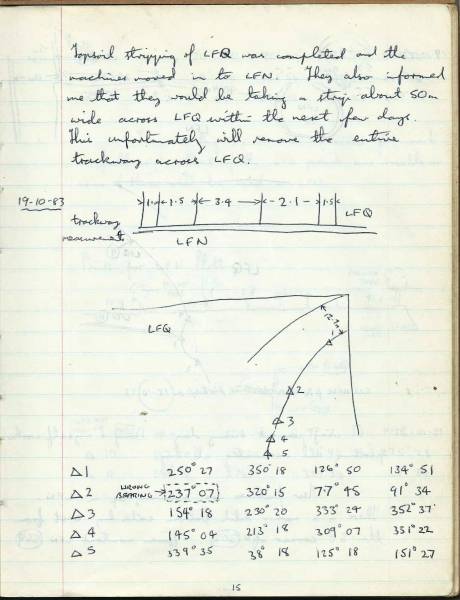 Topsoil stripping of LFQ was completed and the
machines moved in to LFN. They also informed
me that they would be taking a strip about 50m
wide across LFQ within the next few days.
This unfortunately will remove the entire
trackway across LFQ.
19-10-83
1.5 3.4 2.1 1.5 LFQ
trackway
measurements
LFN
LFQ
1
2
3
4
5
Δ1 250° 27 350° 18 126° 50 134° 51
Δ2 WRONG BEARING → 237° 07 320° 15 77° 45 91° 34
Δ3 154° 18 230° 20 333° 24 352° 37
Δ4 145° 04 213° 18 309° 07 331° 22
Δ5 339° 35 38° 18 125° 18 151° 27
15